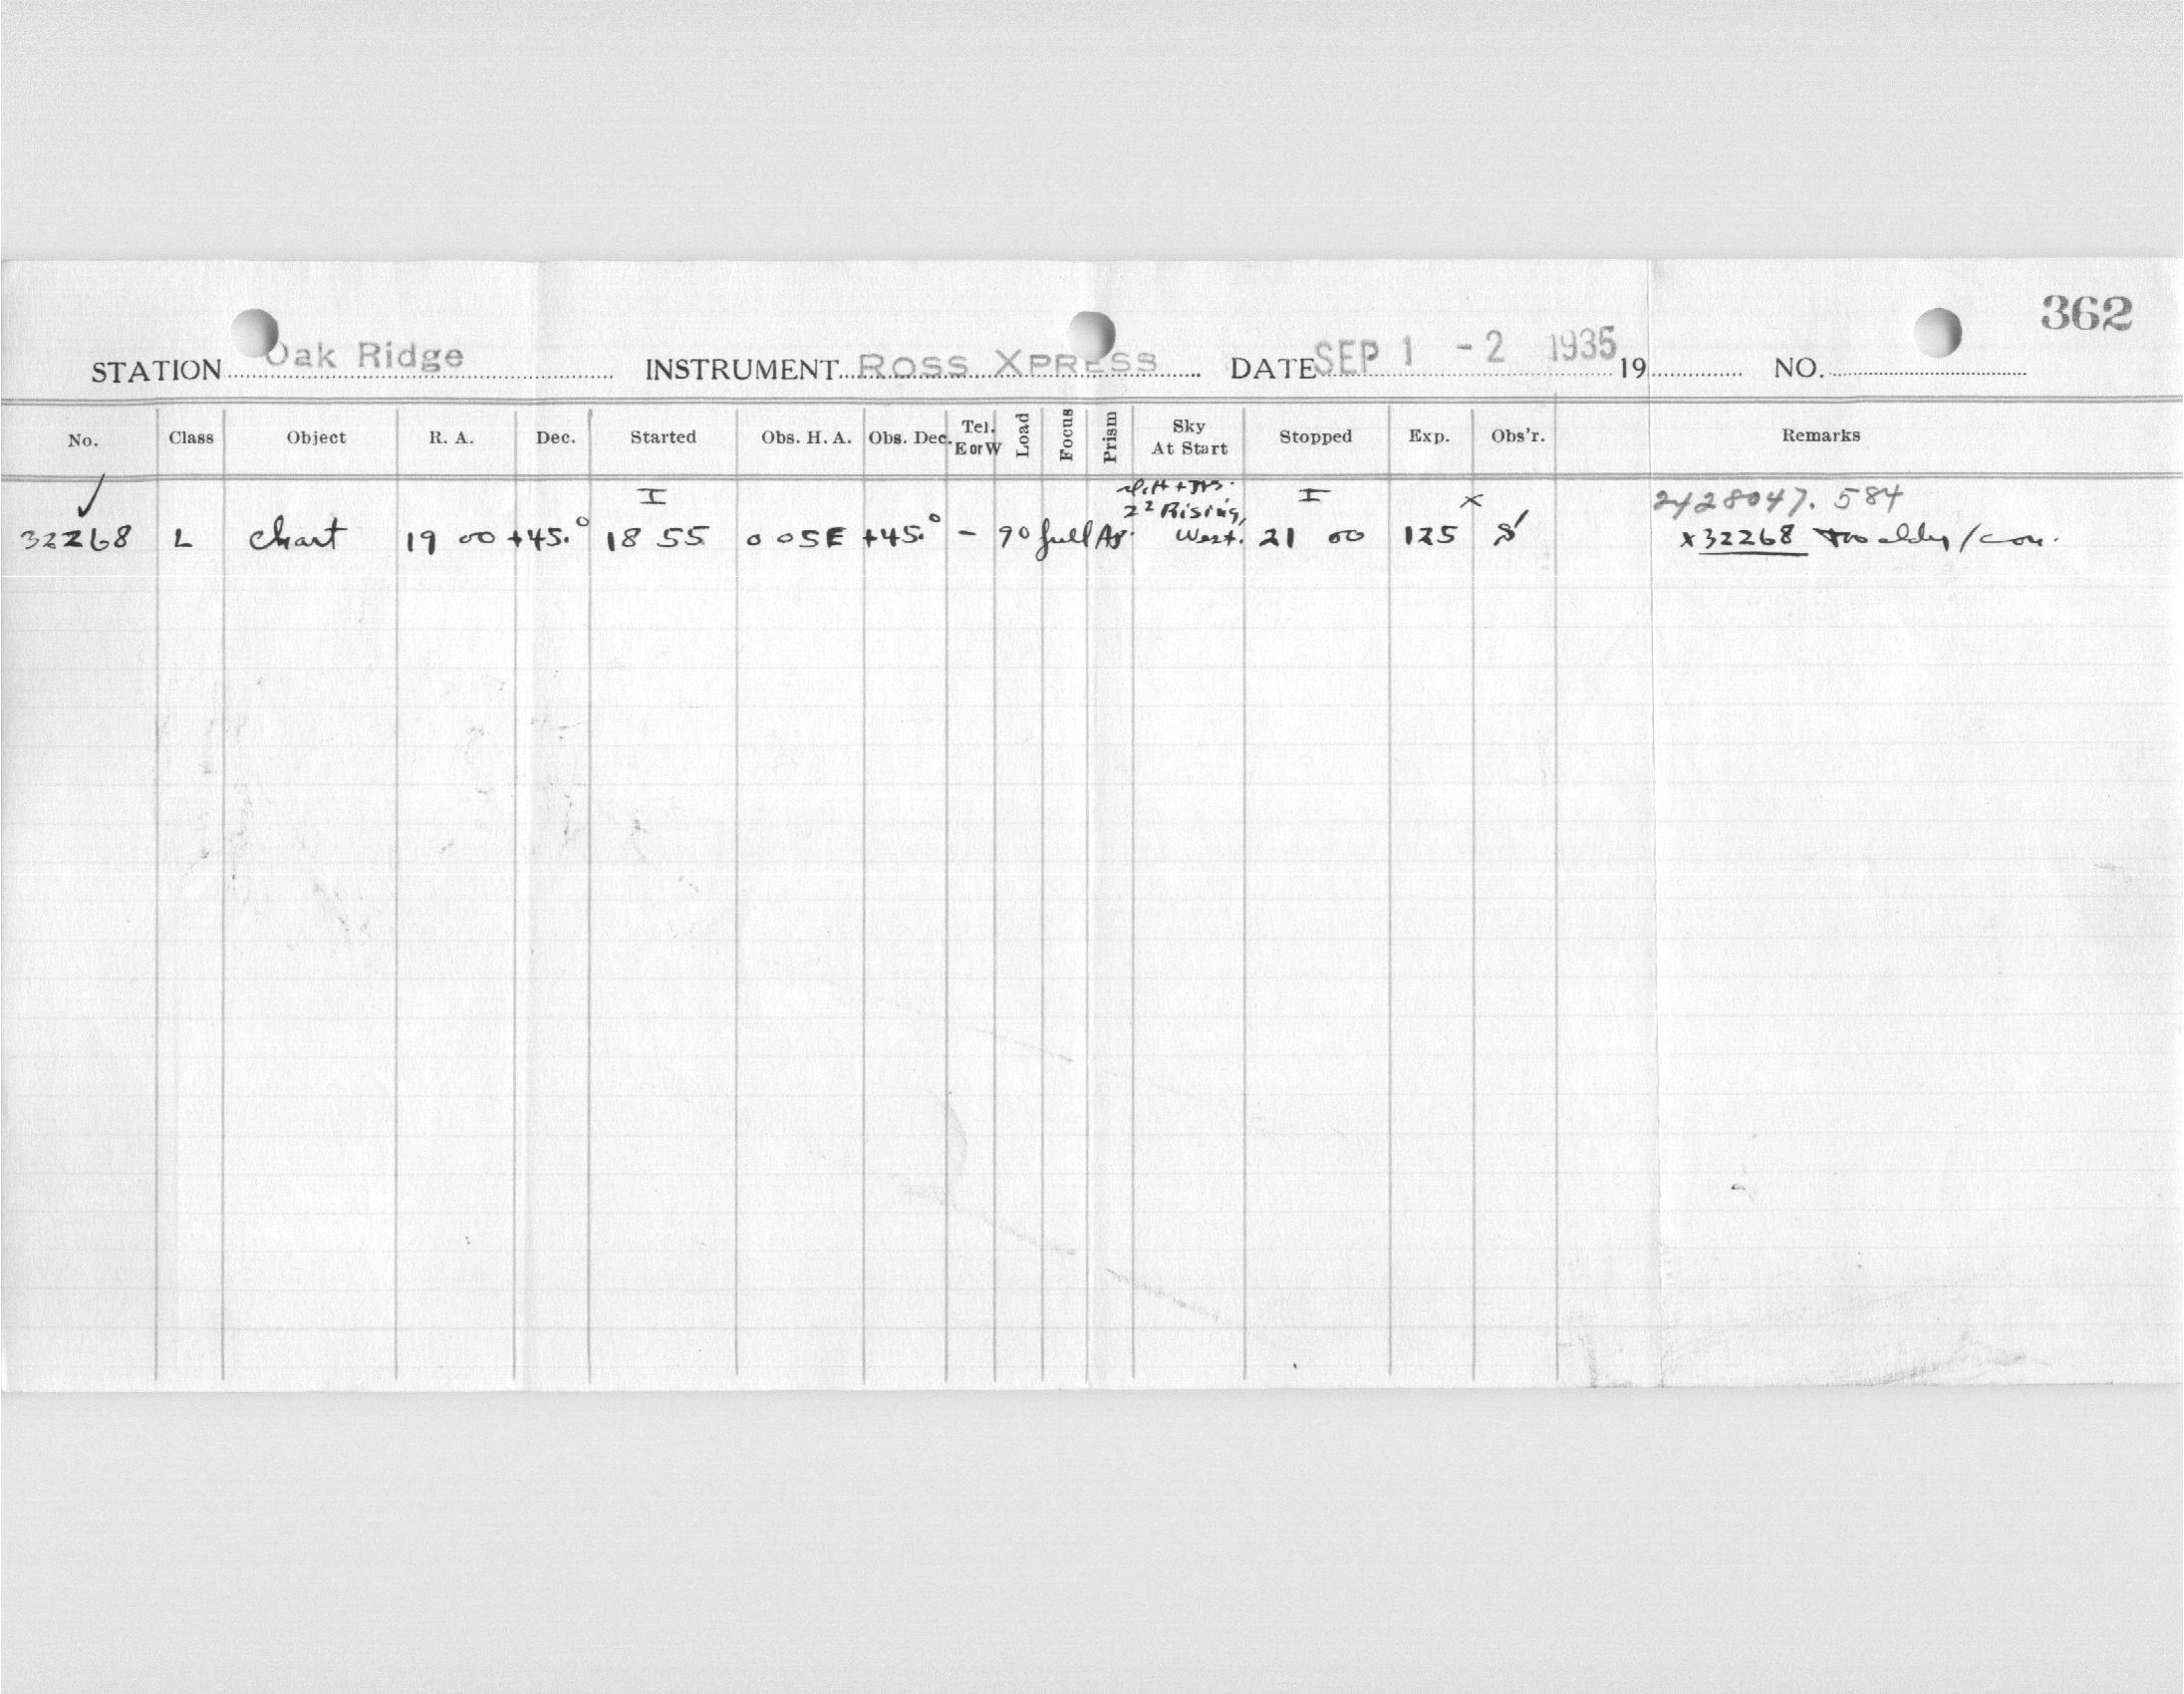 362
STATION Oak Ridge INSTRUMENT ROSS XPRESS DATE SEP 1 - 2 1935 19 NO.
No. Class Object R. A. Dec. Started Obs. H. A. Obs. Dec. Tel. E or W Load Focus Prism Sky At Start Stopped Exp. Obs'r. Remarks
I I x 2428047.584
2² Rising,
32268 L Chart 19 00 +45.° 18 55 0 05E +45.° - 90 full Ap. West. 21 00 125 S x32268 /con.